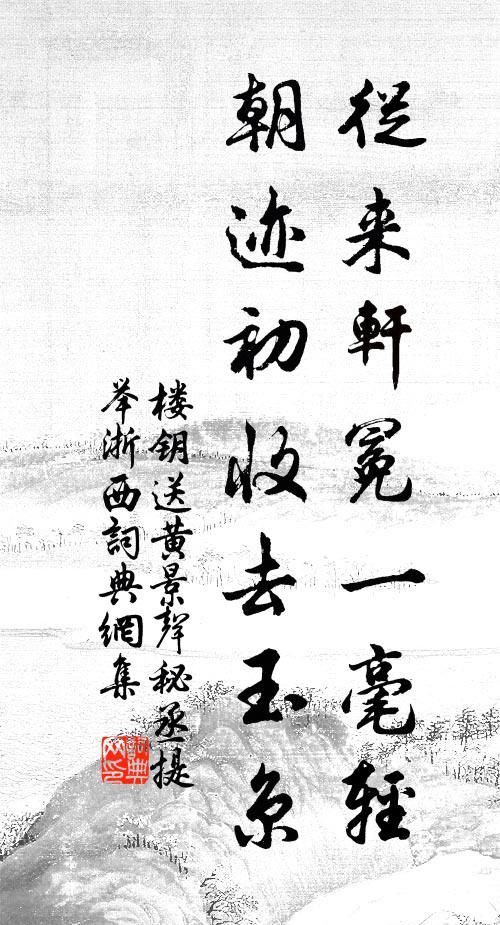 從来軒冕一毫輕
朝迹初收去玉京
楼钥送黄景聲秘丞提
举浙西詞典網集
詞典